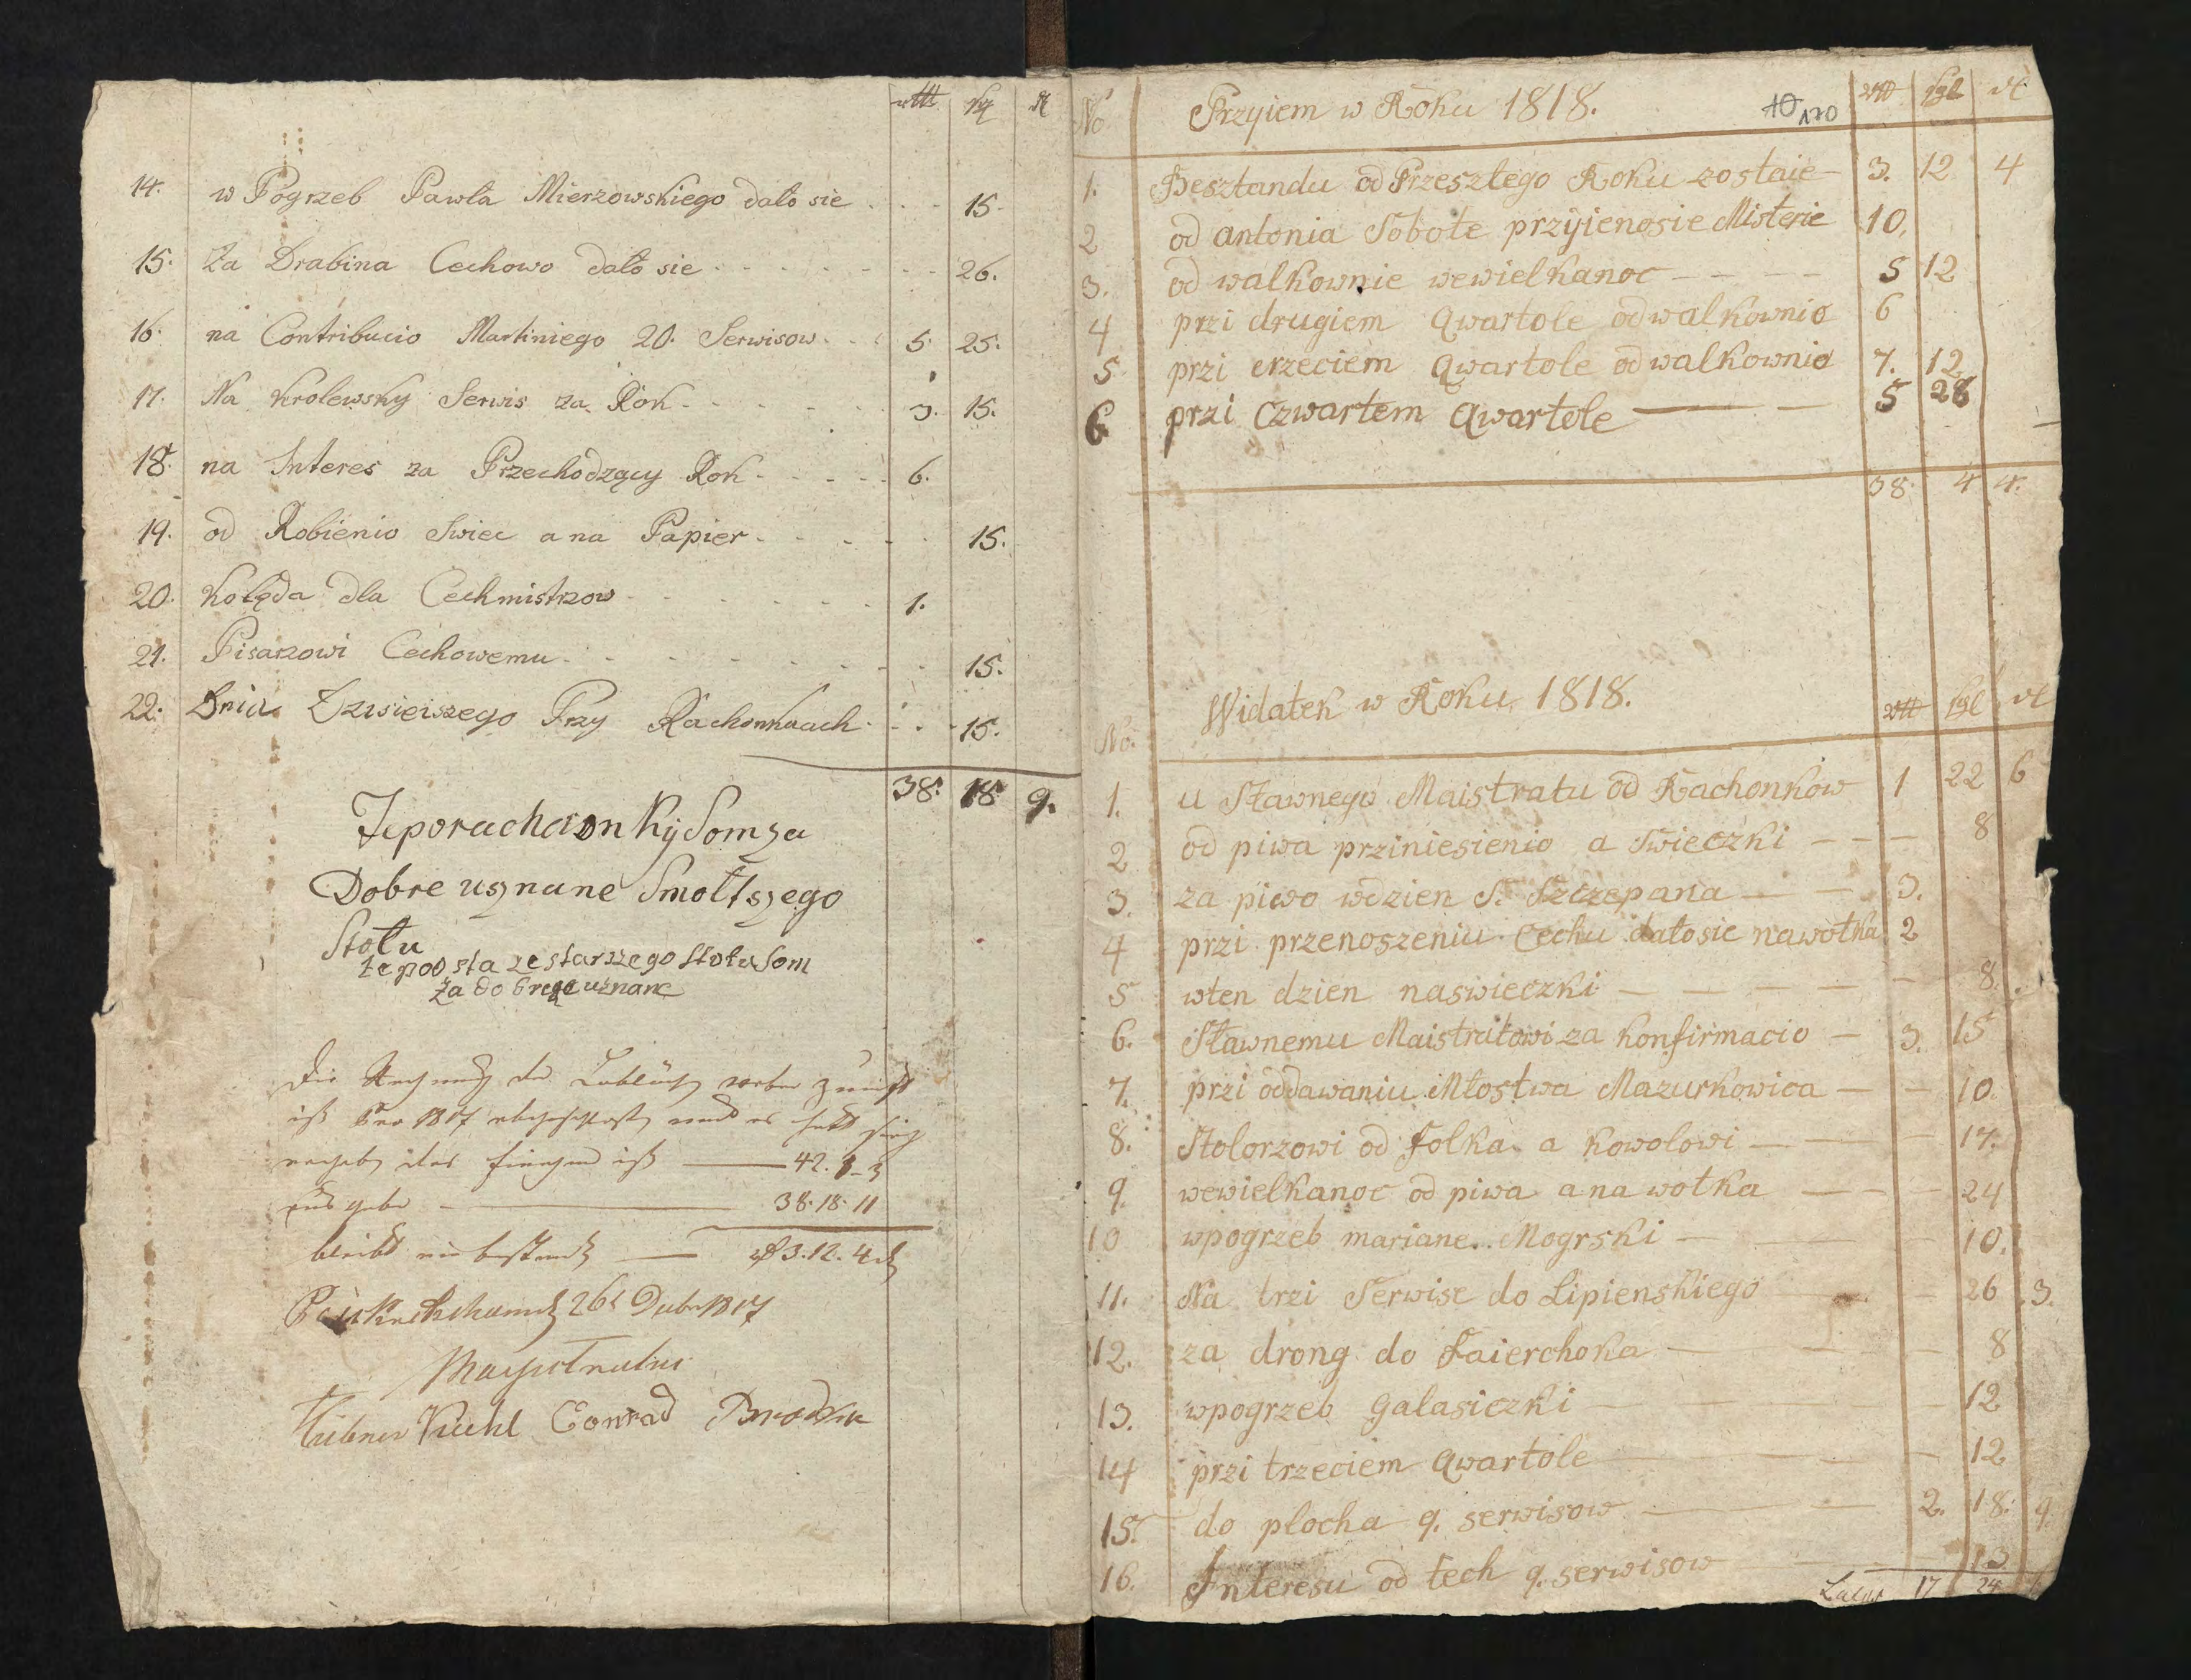 rtlr sgl d
14. w Pogrzeb Pawła Mierzowskiego dało sie 15.
15. Za Drabina Cechowo dało sie 26.
16. na Contribucio Martiniego 20. Serwisow 5. 25.
17. Na Krolewsky Serwis za Rok 3. 15.
18. na Interes za Przechodzący Rok 6.
19. od Robienio Swiec a na Papier 15.
20. Kolęda dla Cechmistrzow 1.
21. Pisarzowi Cechowemu 15.
22. Dnia Dzisieiszego Przy Rachonkaach 15.
38. 18. 9.
Te porachaonky Som za
Dobre usnane Smoltszego
Stołu
te pod sta ze starszego Stołu Som
za dobre uznane
Die Rechnung der Löblichen Zunft
ist pro 1817 abgeschlossen und es hat sich
ergeben das Einnahme ist 42. 1 - 3
Ausgabe 38. 18. 11
bleibt ein bestand 3. 12. 4
26t 1817
Magistratus
Hübner Kuhl Conrad
No Przyiem w Roku 1818. 10 170 rtlr sgl d
1. Besztandu od Przeszłego Roku zostaie 3. 12 4
2 od antonia Sobote przyienosie Misterie 10.
3. od walkownie wewielkanoc 5 12
4 przi drugiem Qwartole od walkownio 6
5 przi trzeciem Qwartole od walkownio 7. 12
6 przi Czwartem Qwartole 5 28
38. 4 4.
Widatek w Roku 1818.
No. rtlr sgl d
1. u Sławnego Maistratu od Rachonkow 1 22 6
2 od piwa prziniesienio a Swieczki 8
3. za piwo wdzien S. Szczepana 3.
4 przi przenoszeniu Cechu dałosie nawotka 2
5 wten dzien naswieczki 8.
6. Sławnemu Maistratowi za konfirmacio 3. 15
7. przi oddawaniu Młostwa Mazurkowica 10.
8. Stolorzowi od Folka a kowolowi 17.
9. wewielkanoc od piwa a na wotka 24
10 wpogrzeb mariane Mogrski 10.
11. Na trzi Serwise do Lipienskiego 26 3.
12. za drong do Faierchoka 8
13. wpogrzeb galasiczki 12
14 przi trzeciem Qwartole 12
15. do płocha 9. serwisow 2. 18. 9.
16. Interesu od tech 9. serwisow 13
Latus 17 24